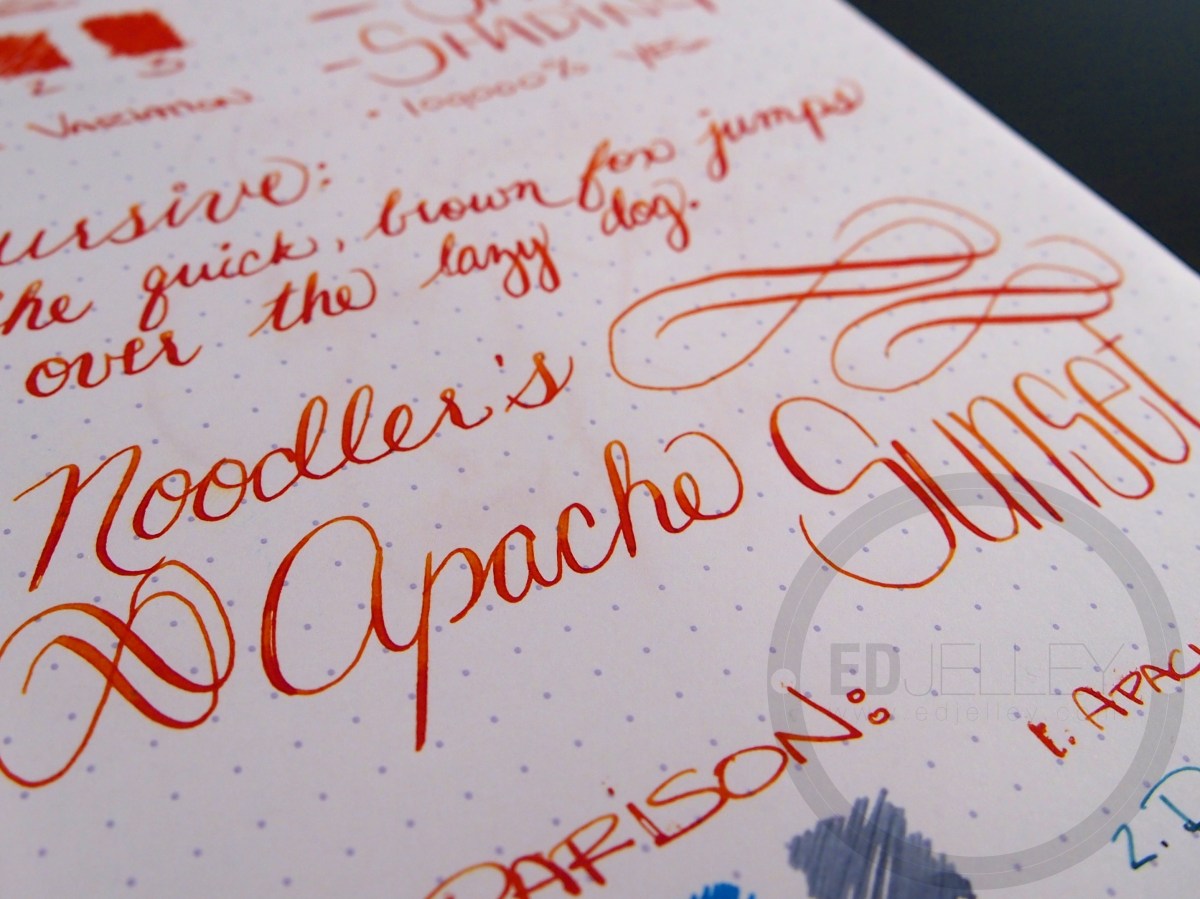 SHADING
2 3
Variation
• 100000% YES
ursive:
the quick, brown fox jumps
over the lazy dog.
Noodler's
Apache Sunset
EDJELLEY
www.edjelley.com
PARISON:
1. APAC
2. D